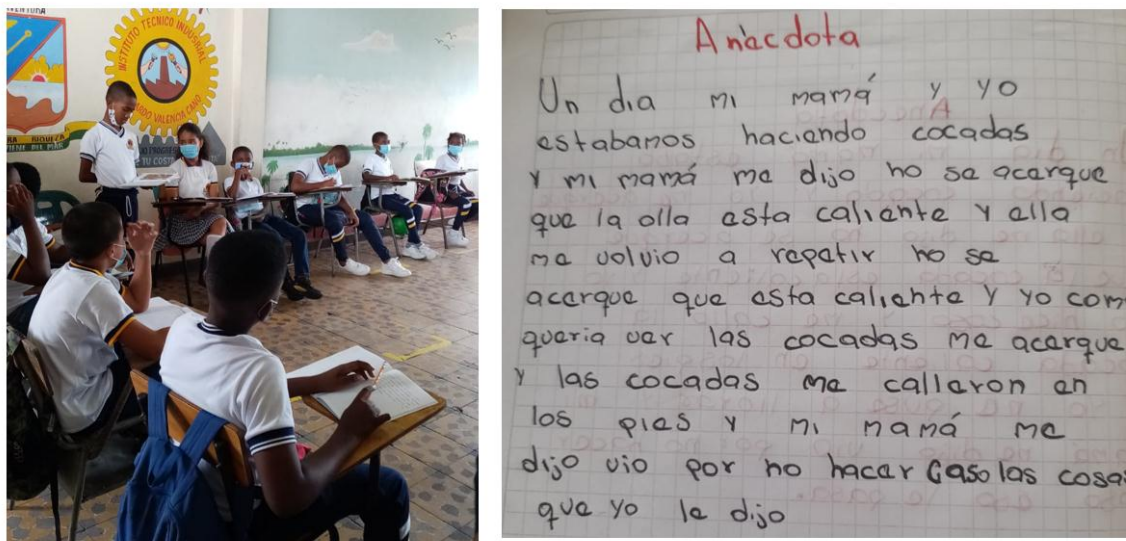 INSTITUTO TECNICO INDUSTRIAL
VALENCIA CANO
RIQUEZA
DEL MAR
TU COSTA
Anecdota
Un dia mi mamá y yo
estabamos haciendo cocadas
y mi mamá me dijo no se acerque
que la olla esta caliente y ella
me volvio a repetir no se
acerque que esta caliente y yo com
queria ver las cocadas me acerque
y las cocadas me calleron en
los pies y mi mamá me
dijo vio por no hacer caso las cosas
que yo le dijo